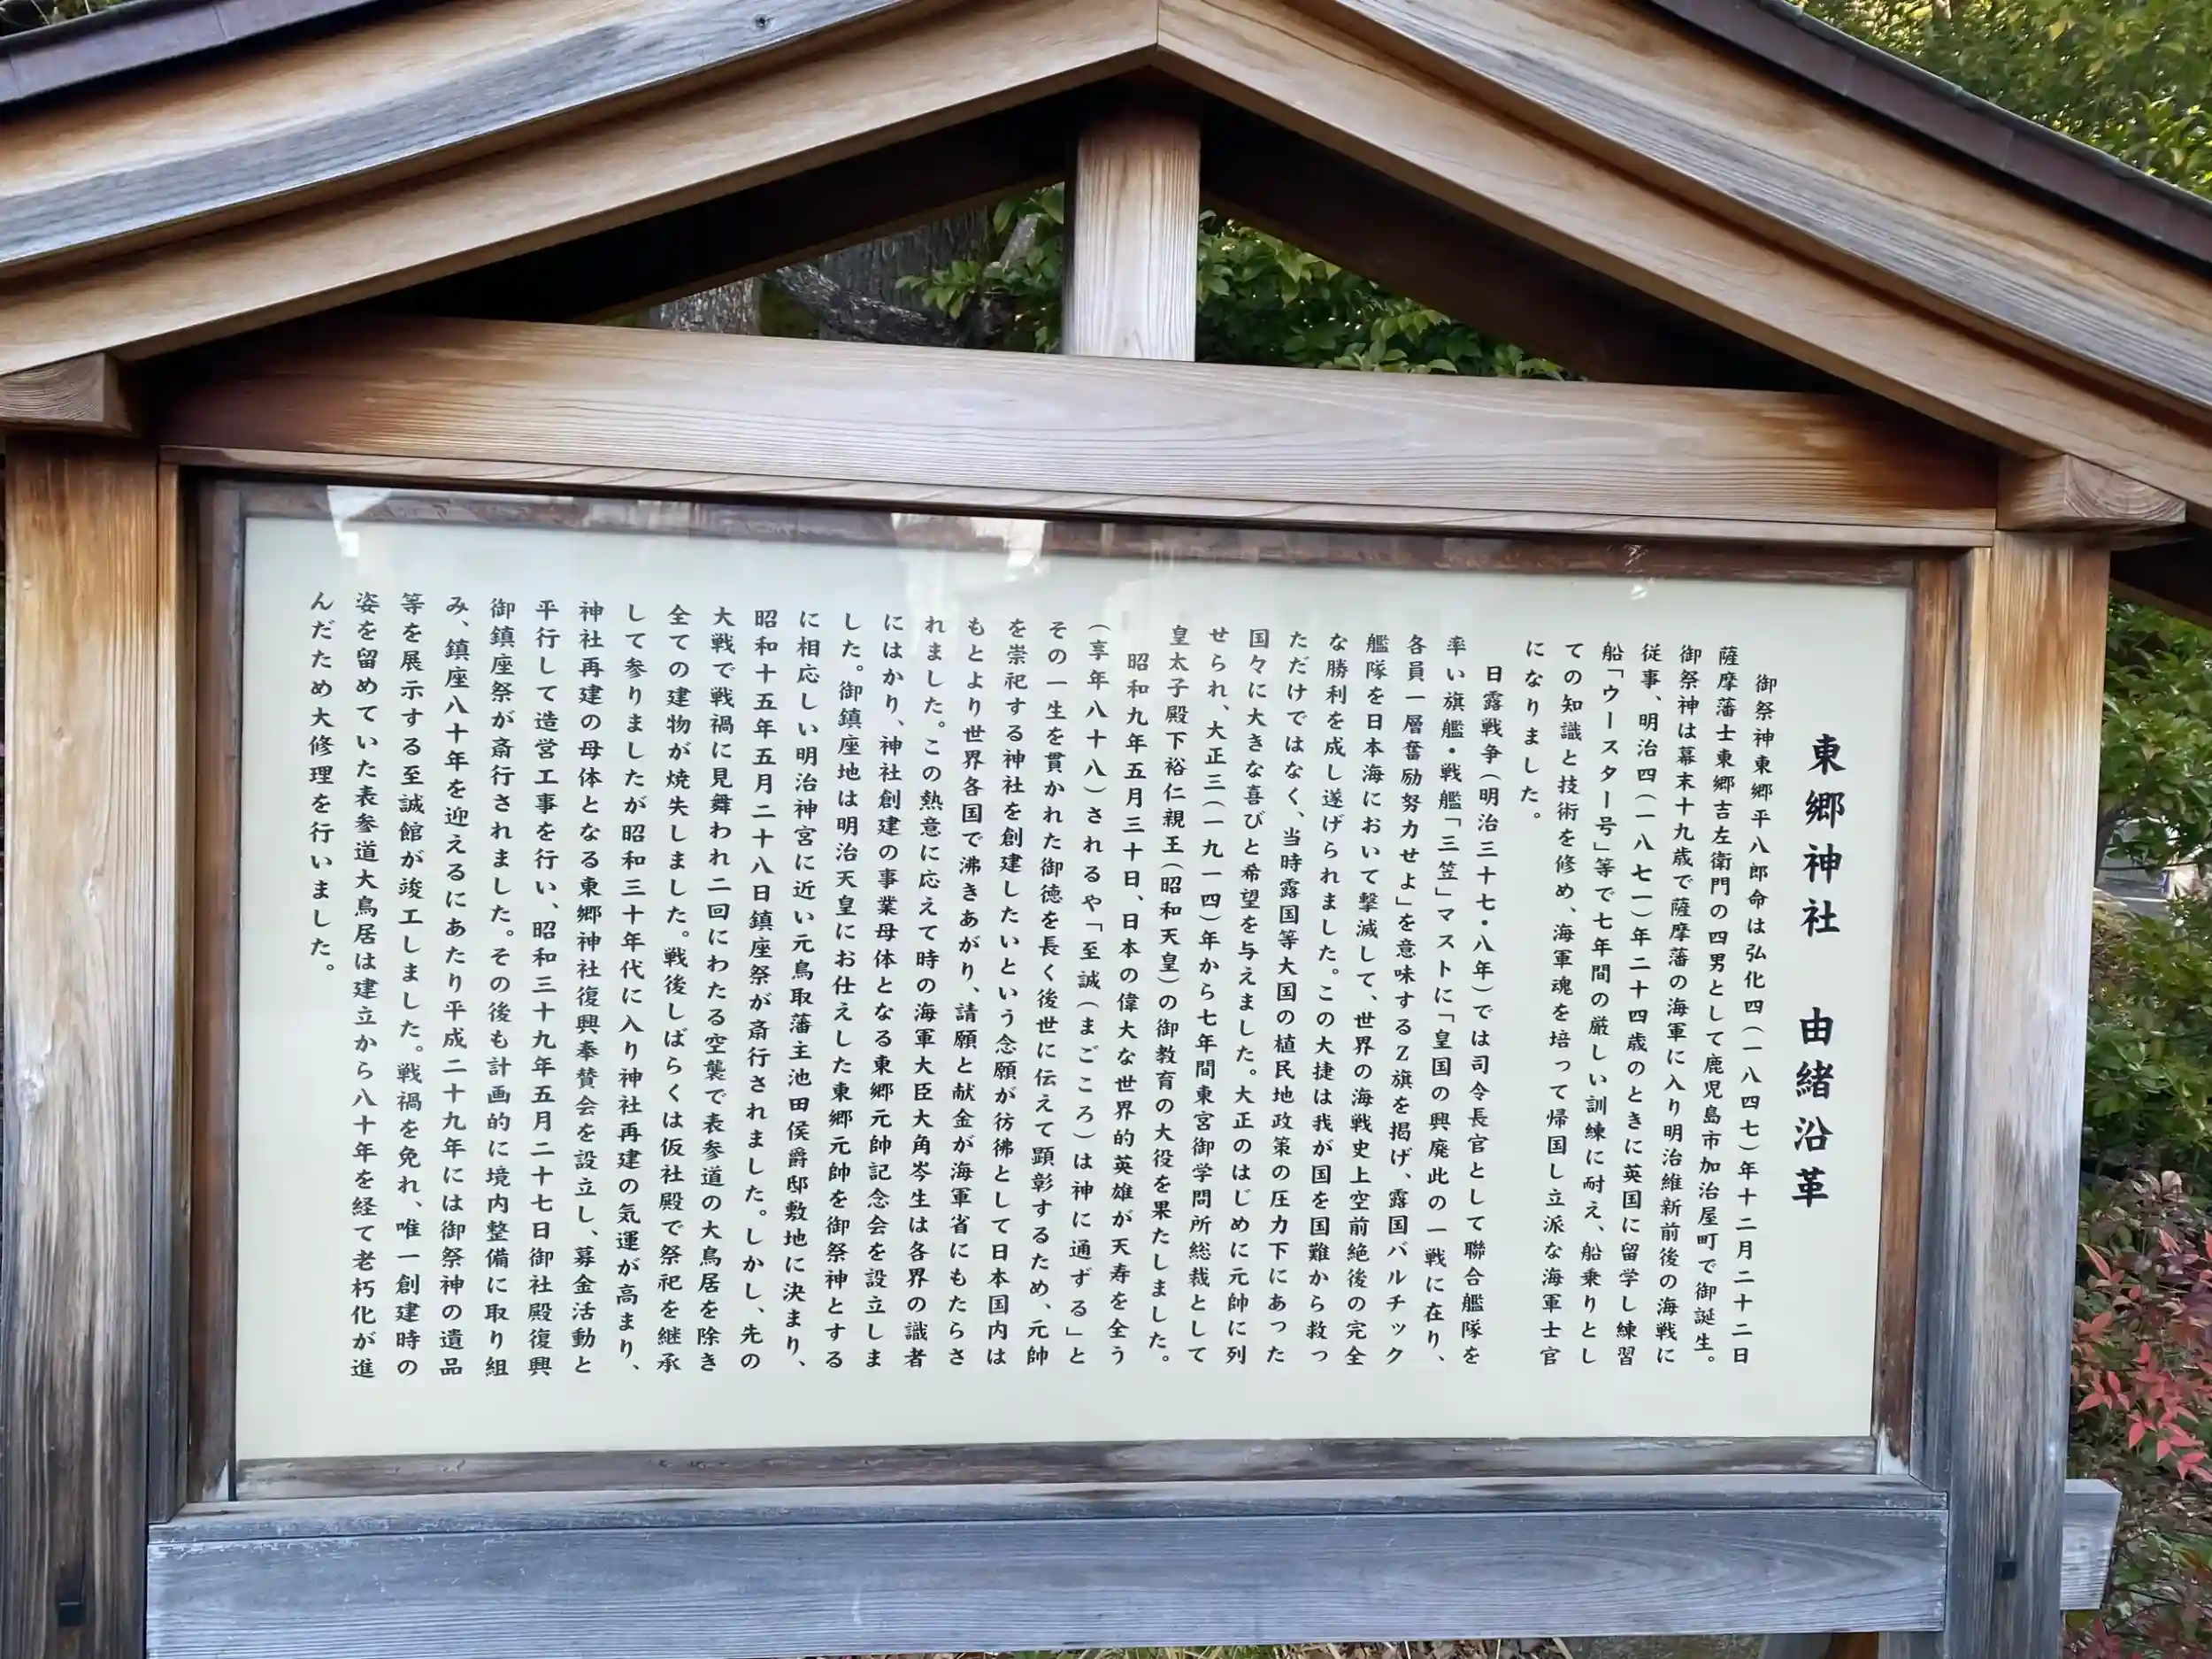 東郷神社　由緒沿革
御祭神東郷平八郎命は弘化四(一八四七)年十二月二十二日
薩摩藩士東郷吉左衛門の四男として鹿児島市加治屋町で御誕生。
御祭神は幕末十九歳で薩摩藩の海軍に入り明治維新前後の海戦に
従事、明治四(一八七一)年二十四歳のときに英国に留学し練習
船「ウースター号」等で七年間の厳しい訓練に耐え、船乗りとし
ての知識と技術を修め、海軍魂を培って帰国し立派な海軍士官
になりました。
日露戦争(明治三十七・八年)では司令長官として聯合艦隊を
率い旗艦・戦艦「三笠」マストに「皇国の興廃此の一戦に在り、
各員一層奮励努力せよ」を意味するZ旗を掲げ、露国バルチック
艦隊を日本海において撃滅して、世界の海戦史上空前絶後の完全
な勝利を成し遂げられました。この大捷は我が国を国難から救っ
ただけではなく、当時露国等大国の植民地政策の圧力下にあった
国々に大きな喜びと希望を与えました。大正のはじめに元帥に列
せられ、大正三(一九一四)年から七年間東宮御学問所総裁として
皇太子殿下裕仁親王(昭和天皇)の御教育の大役を果たしました。
昭和九年五月三十日、日本の偉大な世界的英雄が天寿を全う
(享年八十八)されるや「至誠(まごころ)は神に通ずる」と
その一生を貫かれた御徳を長く後世に伝えて顕彰するため、元帥
を崇祀する神社を創建したいという念願が彷彿として日本国内は
もとより世界各国で沸きあがり、請願と献金が海軍省にもたらさ
れました。この熱意に応えて時の海軍大臣大角岑生は各界の識者
にはかり、神社創建の事業母体となる東郷元帥記念会を設立しま
した。御鎮座地は明治天皇にお仕えした東郷元帥を御祭神とする
に相応しい明治神宮に近い元鳥取藩主池田侯爵邸敷地に決まり、
昭和十五年五月二十八日鎮座祭が斎行されました。しかし、先の
大戦で戦禍に見舞われ二回にわたる空襲で表参道の大鳥居を除き
全ての建物が焼失しました。戦後しばらくは仮社殿で祭祀を継承
して参りましたが昭和三十年代に入り神社再建の気運が高まり、
神社再建の母体となる東郷神社復興奉賛会を設立し、募金活動と
平行して造営工事を行い、昭和三十九年五月二十七日御社殿復興
御鎮座祭が斎行されました。その後も計画的に境内整備に取り組
み、鎮座八十年を迎えるにあたり平成二十九年には御祭神の遺品
等を展示する至誠館が竣工しました。戦禍を免れ、唯一創建時の
姿を留めていた表参道大鳥居は建立から八十年を経て老朽化が進
んだため大修理を行いました。